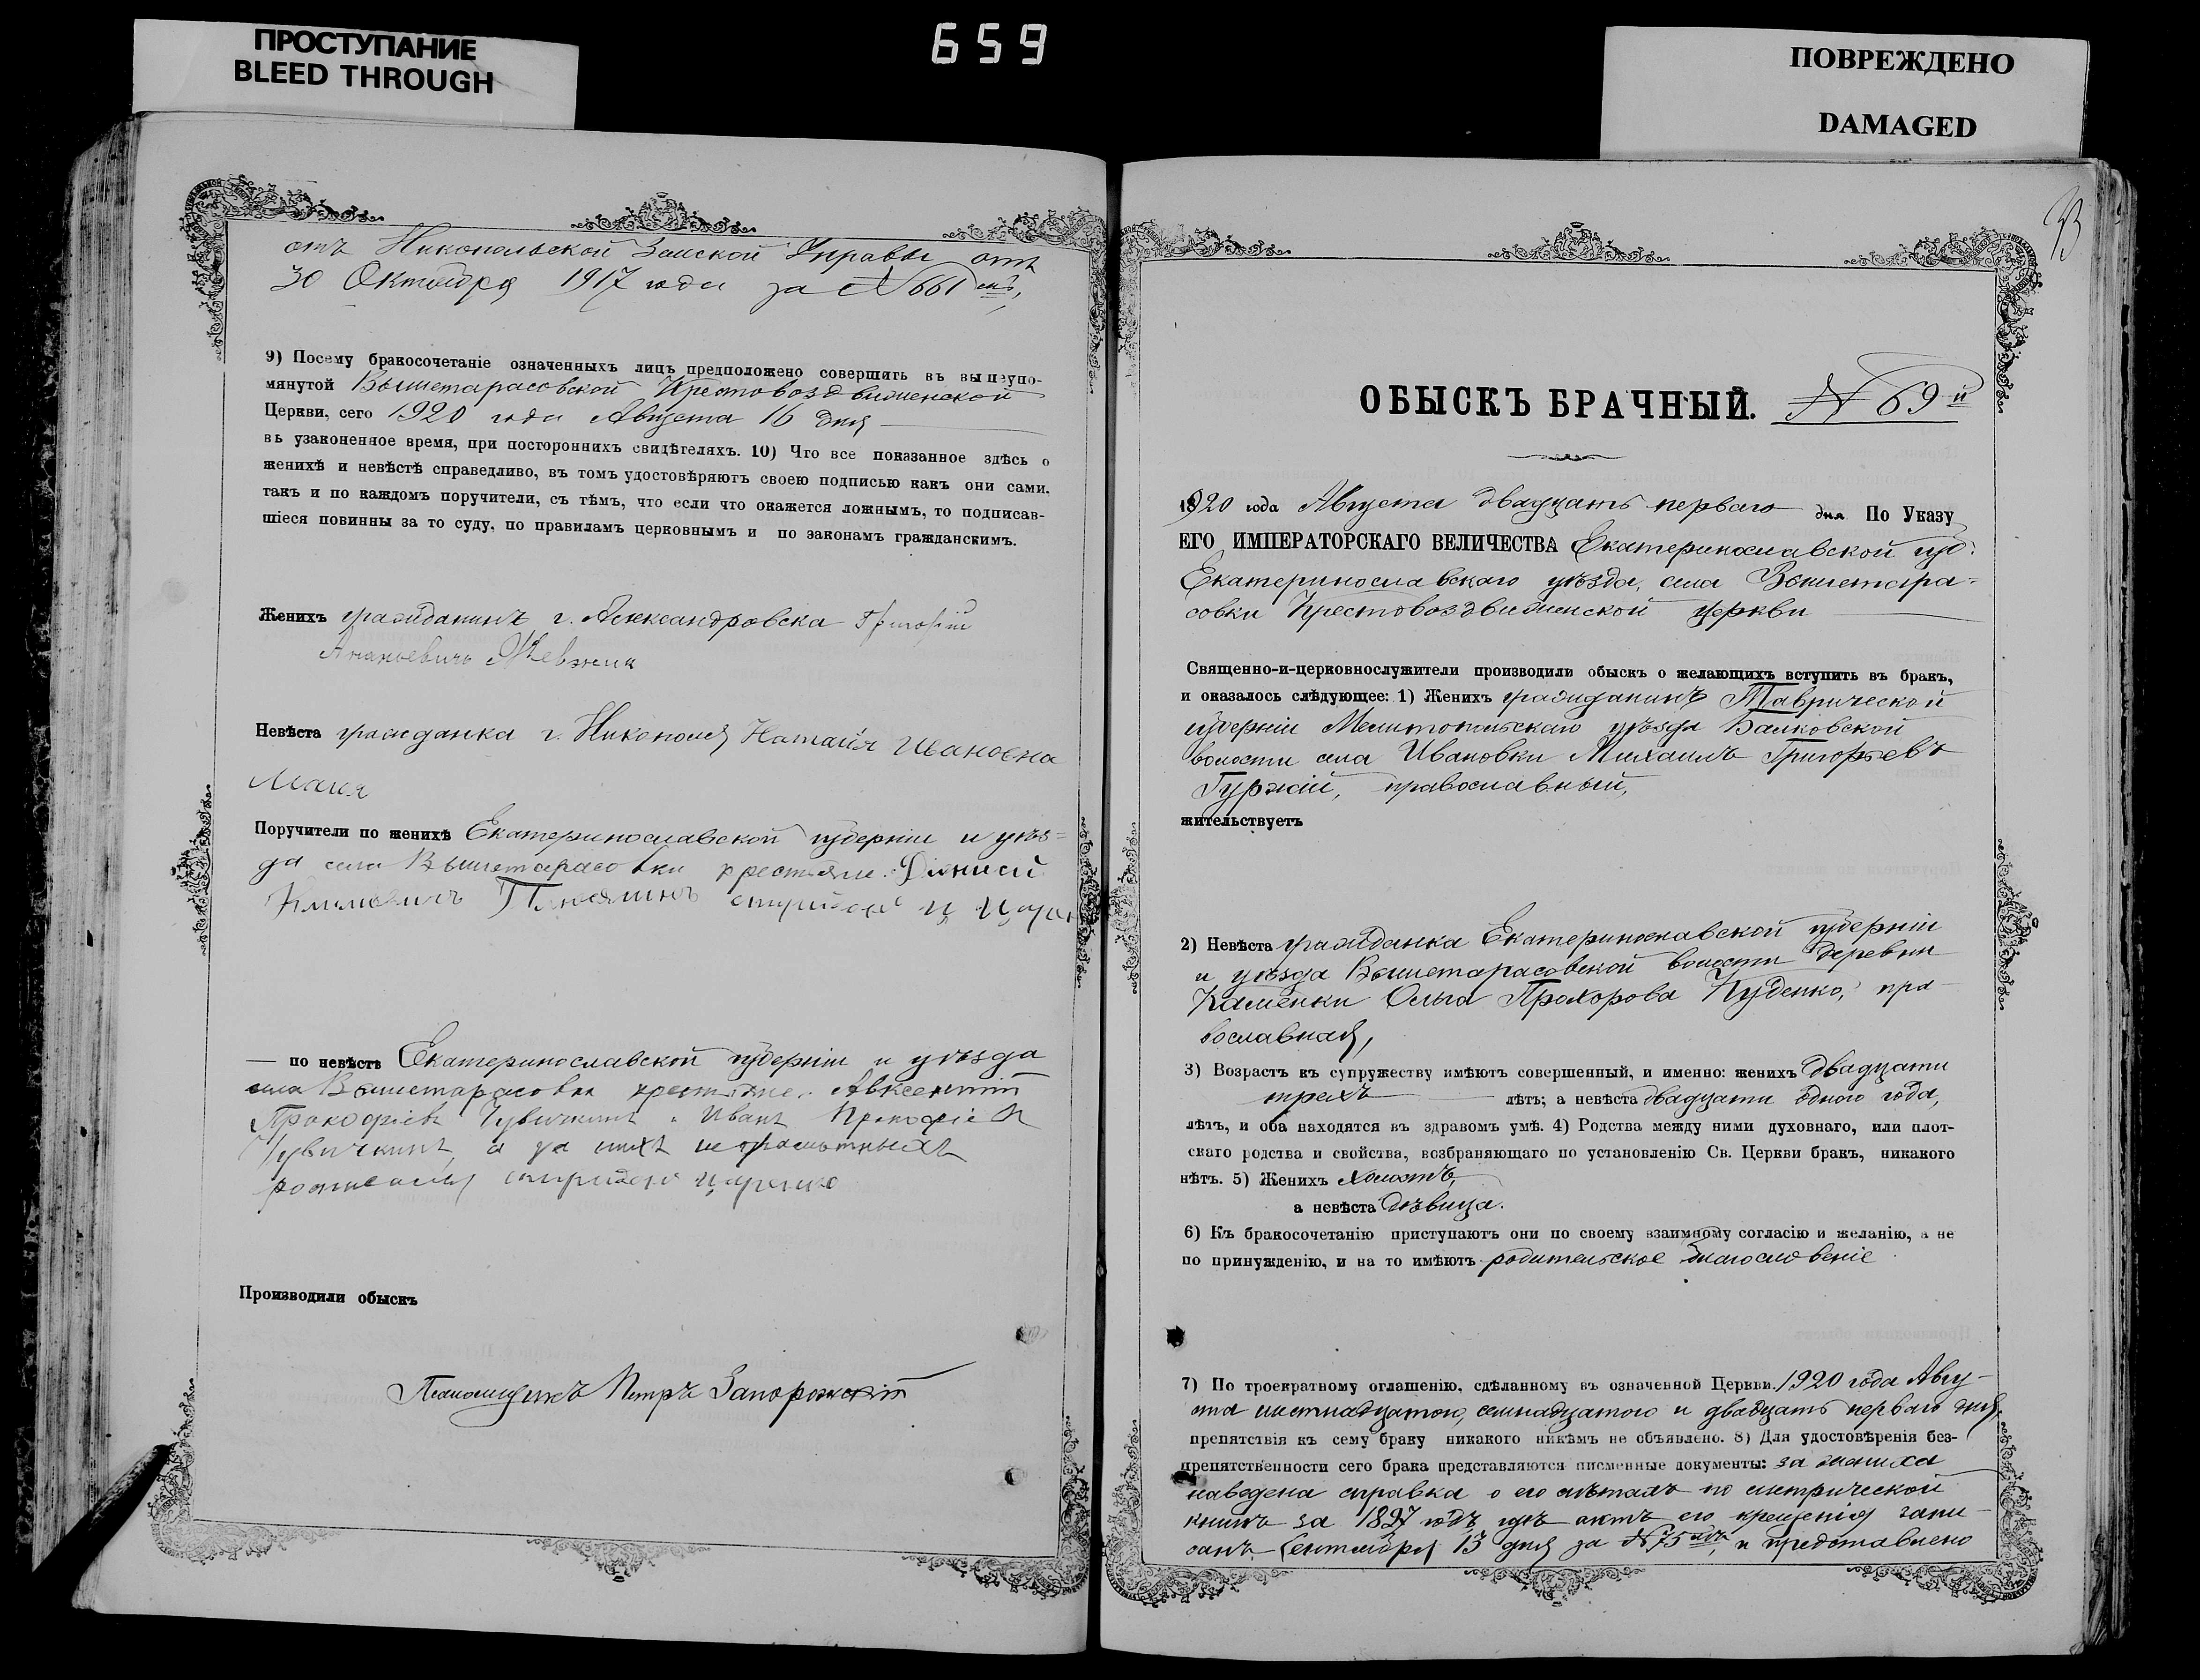 ПРОСТУПАНИЕ
BLEED THROUGH
659
ПОВРЕЖДЕНО
DAMAGED
отъ Никопольской Земской Управы отъ
30 Октября 1917 года за № 661
9) Посему бракосочетаніе означенныхъ лицъ предположено совершить въ вышеупо-
мянутой Вышетарасовской Крестовоздвиженской
Церкви, сего 1920 года Августа 16 дня
въ узаконенное время, при постороннихъ свидѣтеляхъ. 10) Что все показанное здѣсь о
женихѣ и невѣстѣ справедливо, въ томъ удостовѣряютъ своею подписью какъ они сами.
такъ и по каждомъ поручители, съ тѣмъ, что если что окажется ложнымъ, то подписав-
шіеся повинны за то суду, по правиламъ церковнымъ и по законамъ гражданскимъ.
Женихъ гражданинъ г. Александровска Григорій
Ананьевичъ
Невѣста гражданка г. Никополя Наталія Ивановна
Поручители по женихѣ Екатеринославской губерніи и уѣз=
да села Вышетарасовки крестьяне: Діонисій
по невѣстѣ Екатеринославской губерніи и уѣзда
села Вышетарасовки крестьяне: Авксентій
Прокофіевъ Чувичкинъ и Иванъ Прокофіевъ
Чувичкинъ, а за нихъ неграмотныхъ
Производили обыскъ
Псаломщикъ Петръ Запорожскій
ОБЫСКЪ БРАЧНЫЙ. № 69й
1920 года Августа двадцать перваго дня По Указу
ЕГО ИМПЕРАТОРСКАГО ВЕЛИЧЕСТВА Екатеринославской губ:
Екатеринославскаго уѣзда, села Вышетара=
совки Крестовоздвиженской церкви
Священно-и-церковнослужители производили обыскъ о желающихъ вступить въ бракъ,
и оказалось слѣдующее: 1) Женихъ гражданинъ Таврической
губерніи Мелитопольскаго уѣзда Балковской
волости села Ивановки Михаилъ Григорьевъ
Гуржій, православный,
жительствуетъ
2) Невѣста гражданка Екатеринославской губерніи
и уѣзда Вышетарасовской волости деревни
Каменки Ольга Прохорова Куденко, пра-
вославная,
3) Возрастъ къ супружеству имѣютъ совершенный, и именно: женихъ двадцати
трехъ лѣтъ; а невѣста двадцати одного года,
лѣтъ, и оба находятся въ здравомъ умѣ. 4) Родства между ними духовнаго, или плот-
скаго родства и свойства, возбраняющаго по установленію Св. Церкви бракъ, никакого
нѣтъ. 5) Женихъ холостъ,
а невѣста дѣвица.
6) Къ бракосочетанію приступаютъ они по своему взаимному согласію и желанію, а не
по принужденію, и на то имѣютъ родительское благословеніе
7) По троекратному оглашенію, сдѣланному въ означенной Церкви 1920 года Авгу-
ста шестнадцатого, семнадцатого и двадцать перваго дня,
препятствія къ сему браку никакого никѣмъ не объявлено. 8) Для удостовѣренія без-
препятственности сего брака представляются писменные документы: за жениха
наведена справка о его лѣтахъ по метрической
книгѣ за 1897 годъ, гдѣ актъ его крещенія запи-
санъ Сентября 13 дня за № 75 и представлено